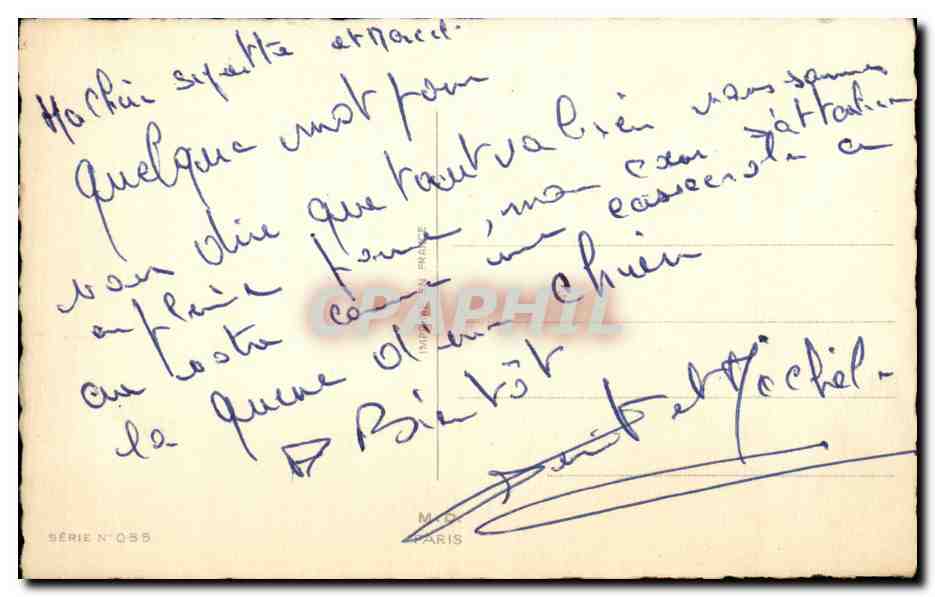 Ma Chère et
Quelque mot pour
vous dire que tout va bien nous sommes
en pleine forme, mon cœur s'attache
au votre comme une casserole a
la queue d'un chien
A Bientôt
et Michel
IMPRIMÉ EN FRANCE
CPAPHIL
SÉRIE N° 055
M.D.
PARIS